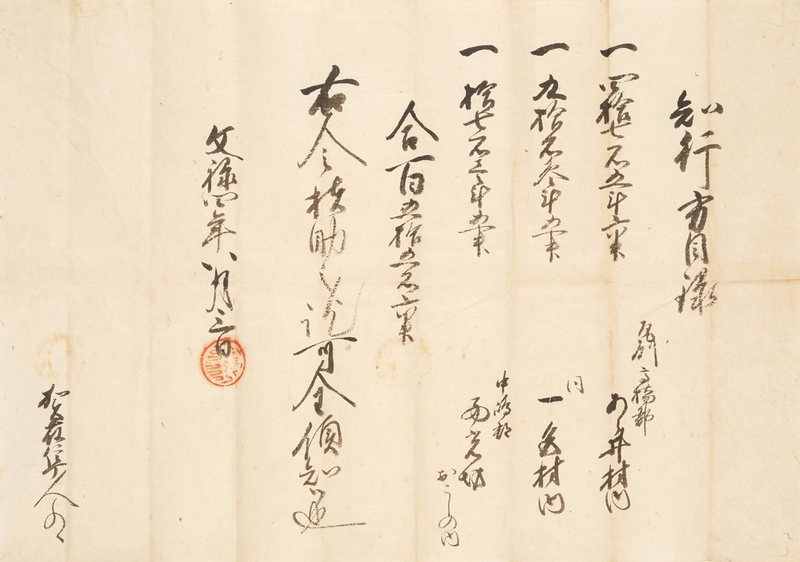 知行方目録
尾州高橋郡
一 四拾七石五斗六升 村内
同
一 九拾石参斗五升 一色村内
中嶋郡
一 拾七石 斗五升 西光坊
おこしの内
合百五拾五石六升
右令扶助之訖可全領知也
文禄四年八月三日
加藤隼人とのへ